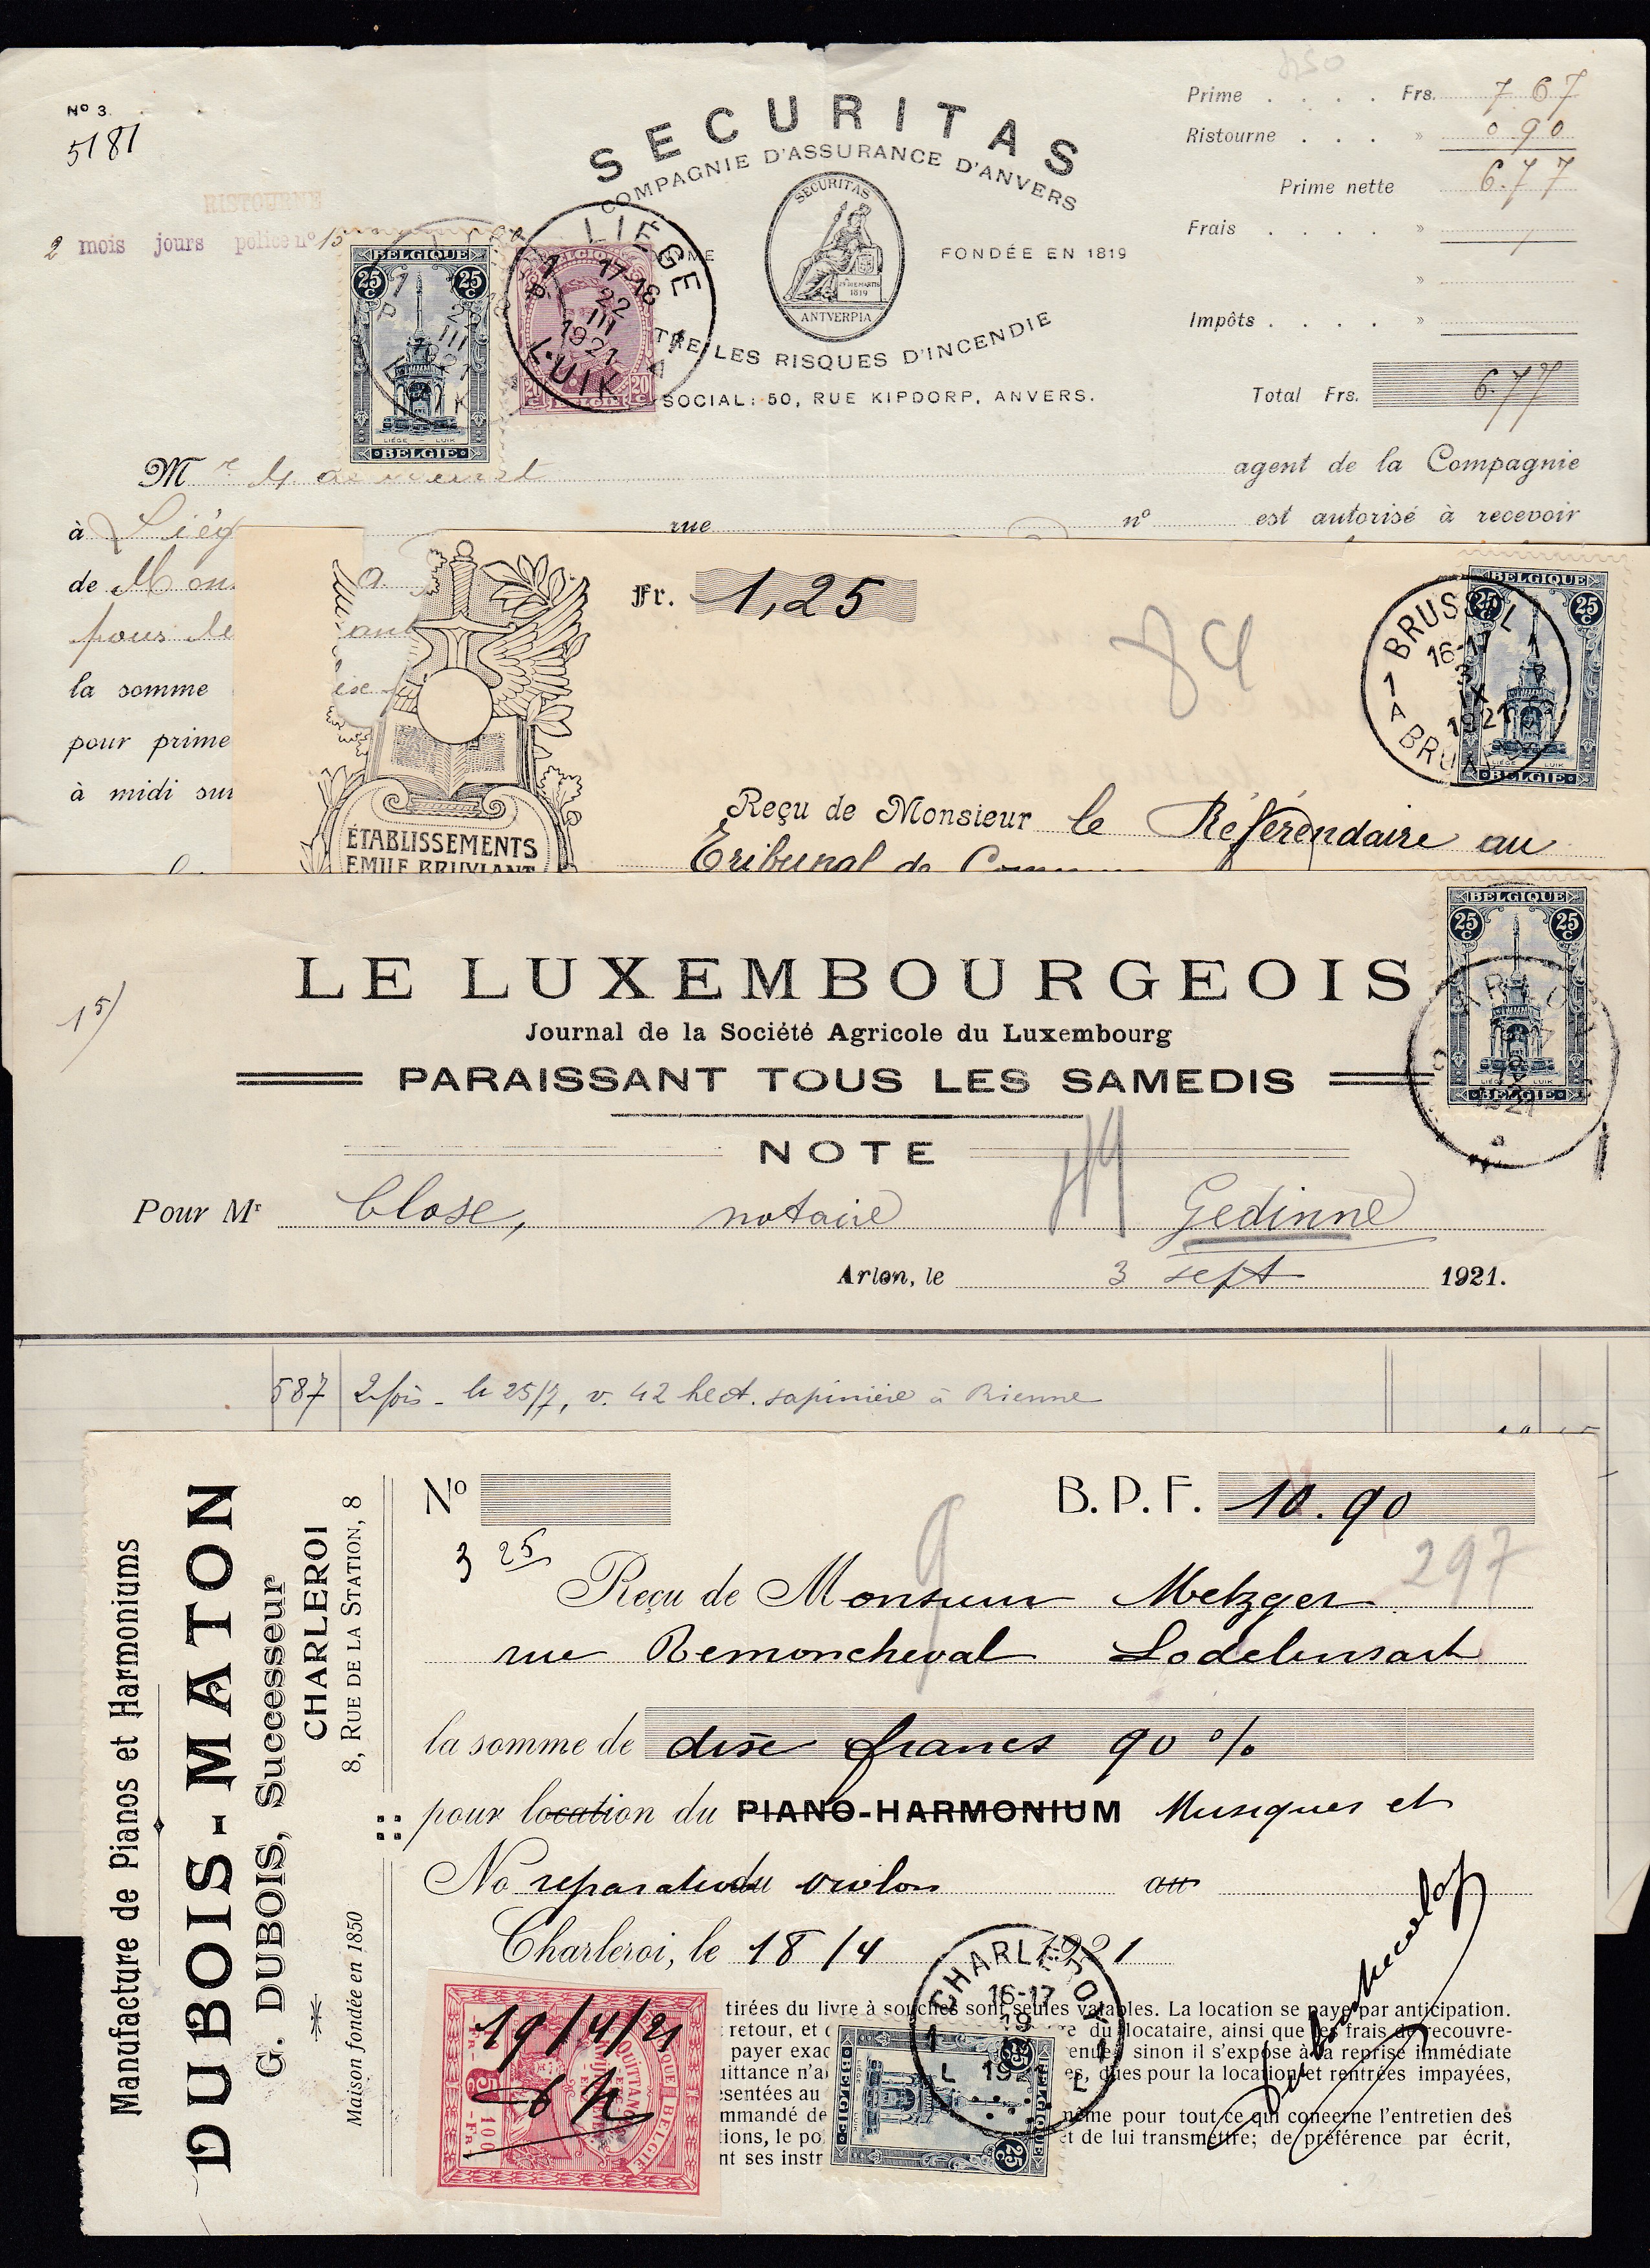 Nº 3.
5181
RISTOURNE
2 mois jours police nº 15
SECURITAS
COMPAGNIE D'ASSURANCE D'ANVERS
SECURITAS
1819
ANTVERPIA
FONDÉE EN 1819
TRE LES RISQUES D'INCENDIE
SOCIAL: 50, RUE KIPDORP, ANVERS.
Prime . . . . Frs. 7.67
Ristourne . . . » 0.90
Prime nette 6.77
Frais . . . . »
»
Impôts . . . . »
Total Frs. 6.77
BELGIQUE
25 c 25 c
LIÉGE - LUIK
BELGIE
20 c 20 c
LIÉGE
17-18
22
III
1921
LUIK
Mr
agent de la Compagnie
à Liég
rue
nº
est autorisé à recevoir
de Mon
pour le
la somme
pour prime
à midi sur
Fr. 1,25
84
BELGIQUE
25 c 25 c
LIÉGE - LUIK
BELGIE
BRUSSEL
16-17
3
IX
1921
1 A
Reçu de Monsieur le Référendaire au
Tribunal de
ÉTABLISSEMENTS
EMILE BRUYLANT
BELGIQUE
25 c 25 c
LIÉGE - LUIK
BELGIE
1921
15)
LE LUXEMBOURGEOIS
Journal de la Société Agricole du Luxembourg
PARAISSANT TOUS LES SAMEDIS
NOTE
Pour Mr Close, notaire Gedinne
Arlon, le 3 sept 1921.
587 2 fois - le 25/7, v. 42 hect. sapinière à Rienne
Manufacture de Pianos et Harmoniums
DUBOIS-MATON
G. DUBOIS, Successeur
CHARLEROI
8, RUE DE LA STATION, 8
Maison fondée en 1850
Nº
B.P.F. 10.90
3 25
9
297
Reçu de Monsieur Metzger
rue Remoncheval Lodelinsart
la somme de dix francs 90 %
pour location du PIANO-HARMONIUM Musiques et
No reparation du violon au
Charleroi, le 18/4 1921
CHARLEROI
16-17
19
1921
1 L
19/4/21
QUITTANCES
BELGIE
5 c
100 Fr
BELGIQUE
25 c 25 c
BELGIE
tirées du livre à souches sont seules valables. La location se paye par anticipation.
retour, et
du locataire, ainsi que les frais de recouvre-
payer exac
sinon il s'expose à la reprise immédiate
uittance n'a
es, dues pour la location et rentrées impayées,
ésentées au
mmandé de
même pour tout ce qui concerne l'entretien des
tions, le po
et de lui transmettre; de préférence par écrit,
nt ses instr